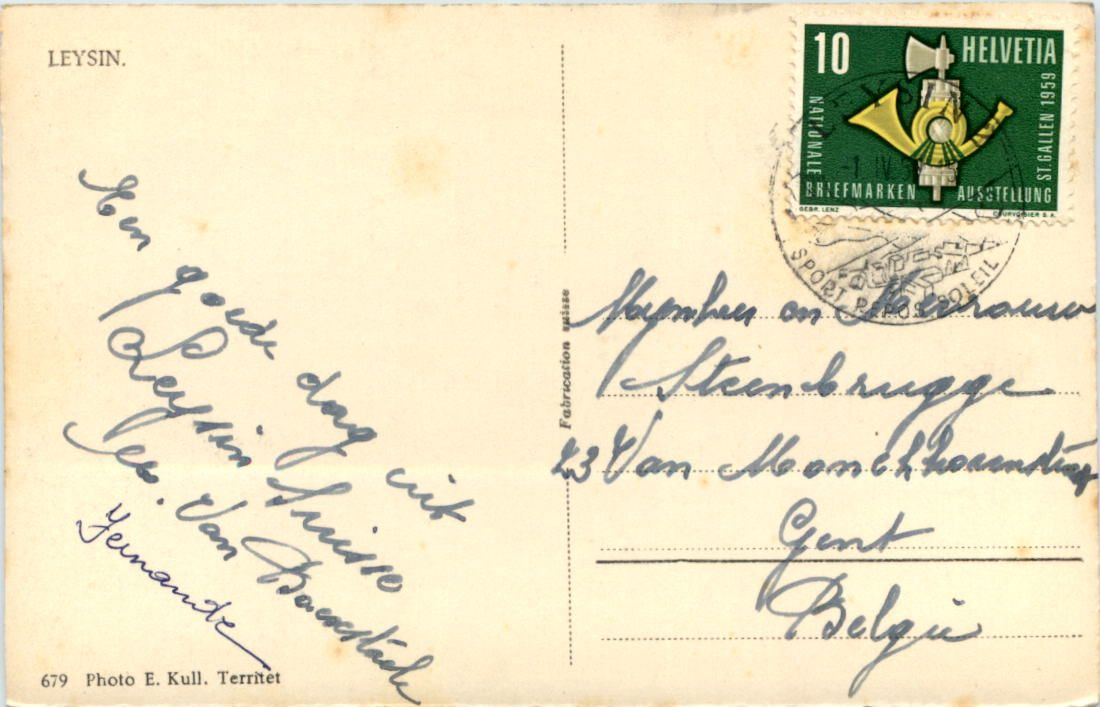 LEYSIN.
10 HELVETIA
NATIONALE
BRIEFMARKEN AUSSTELLUNG
ST. GALLEN 1959
GEBR. LENZ COURVOISIER S.A.
LEYSIN
-1 IV
SPORT REPOS SOLEIL
Een goede dag uit
Leysin Suisse
Van
Fernande
Fabrication suisse
Mijnheer en Mevrouw
Steenbrugge
23 Van
Gent
Belgie
679 Photo E. Kull. Territet